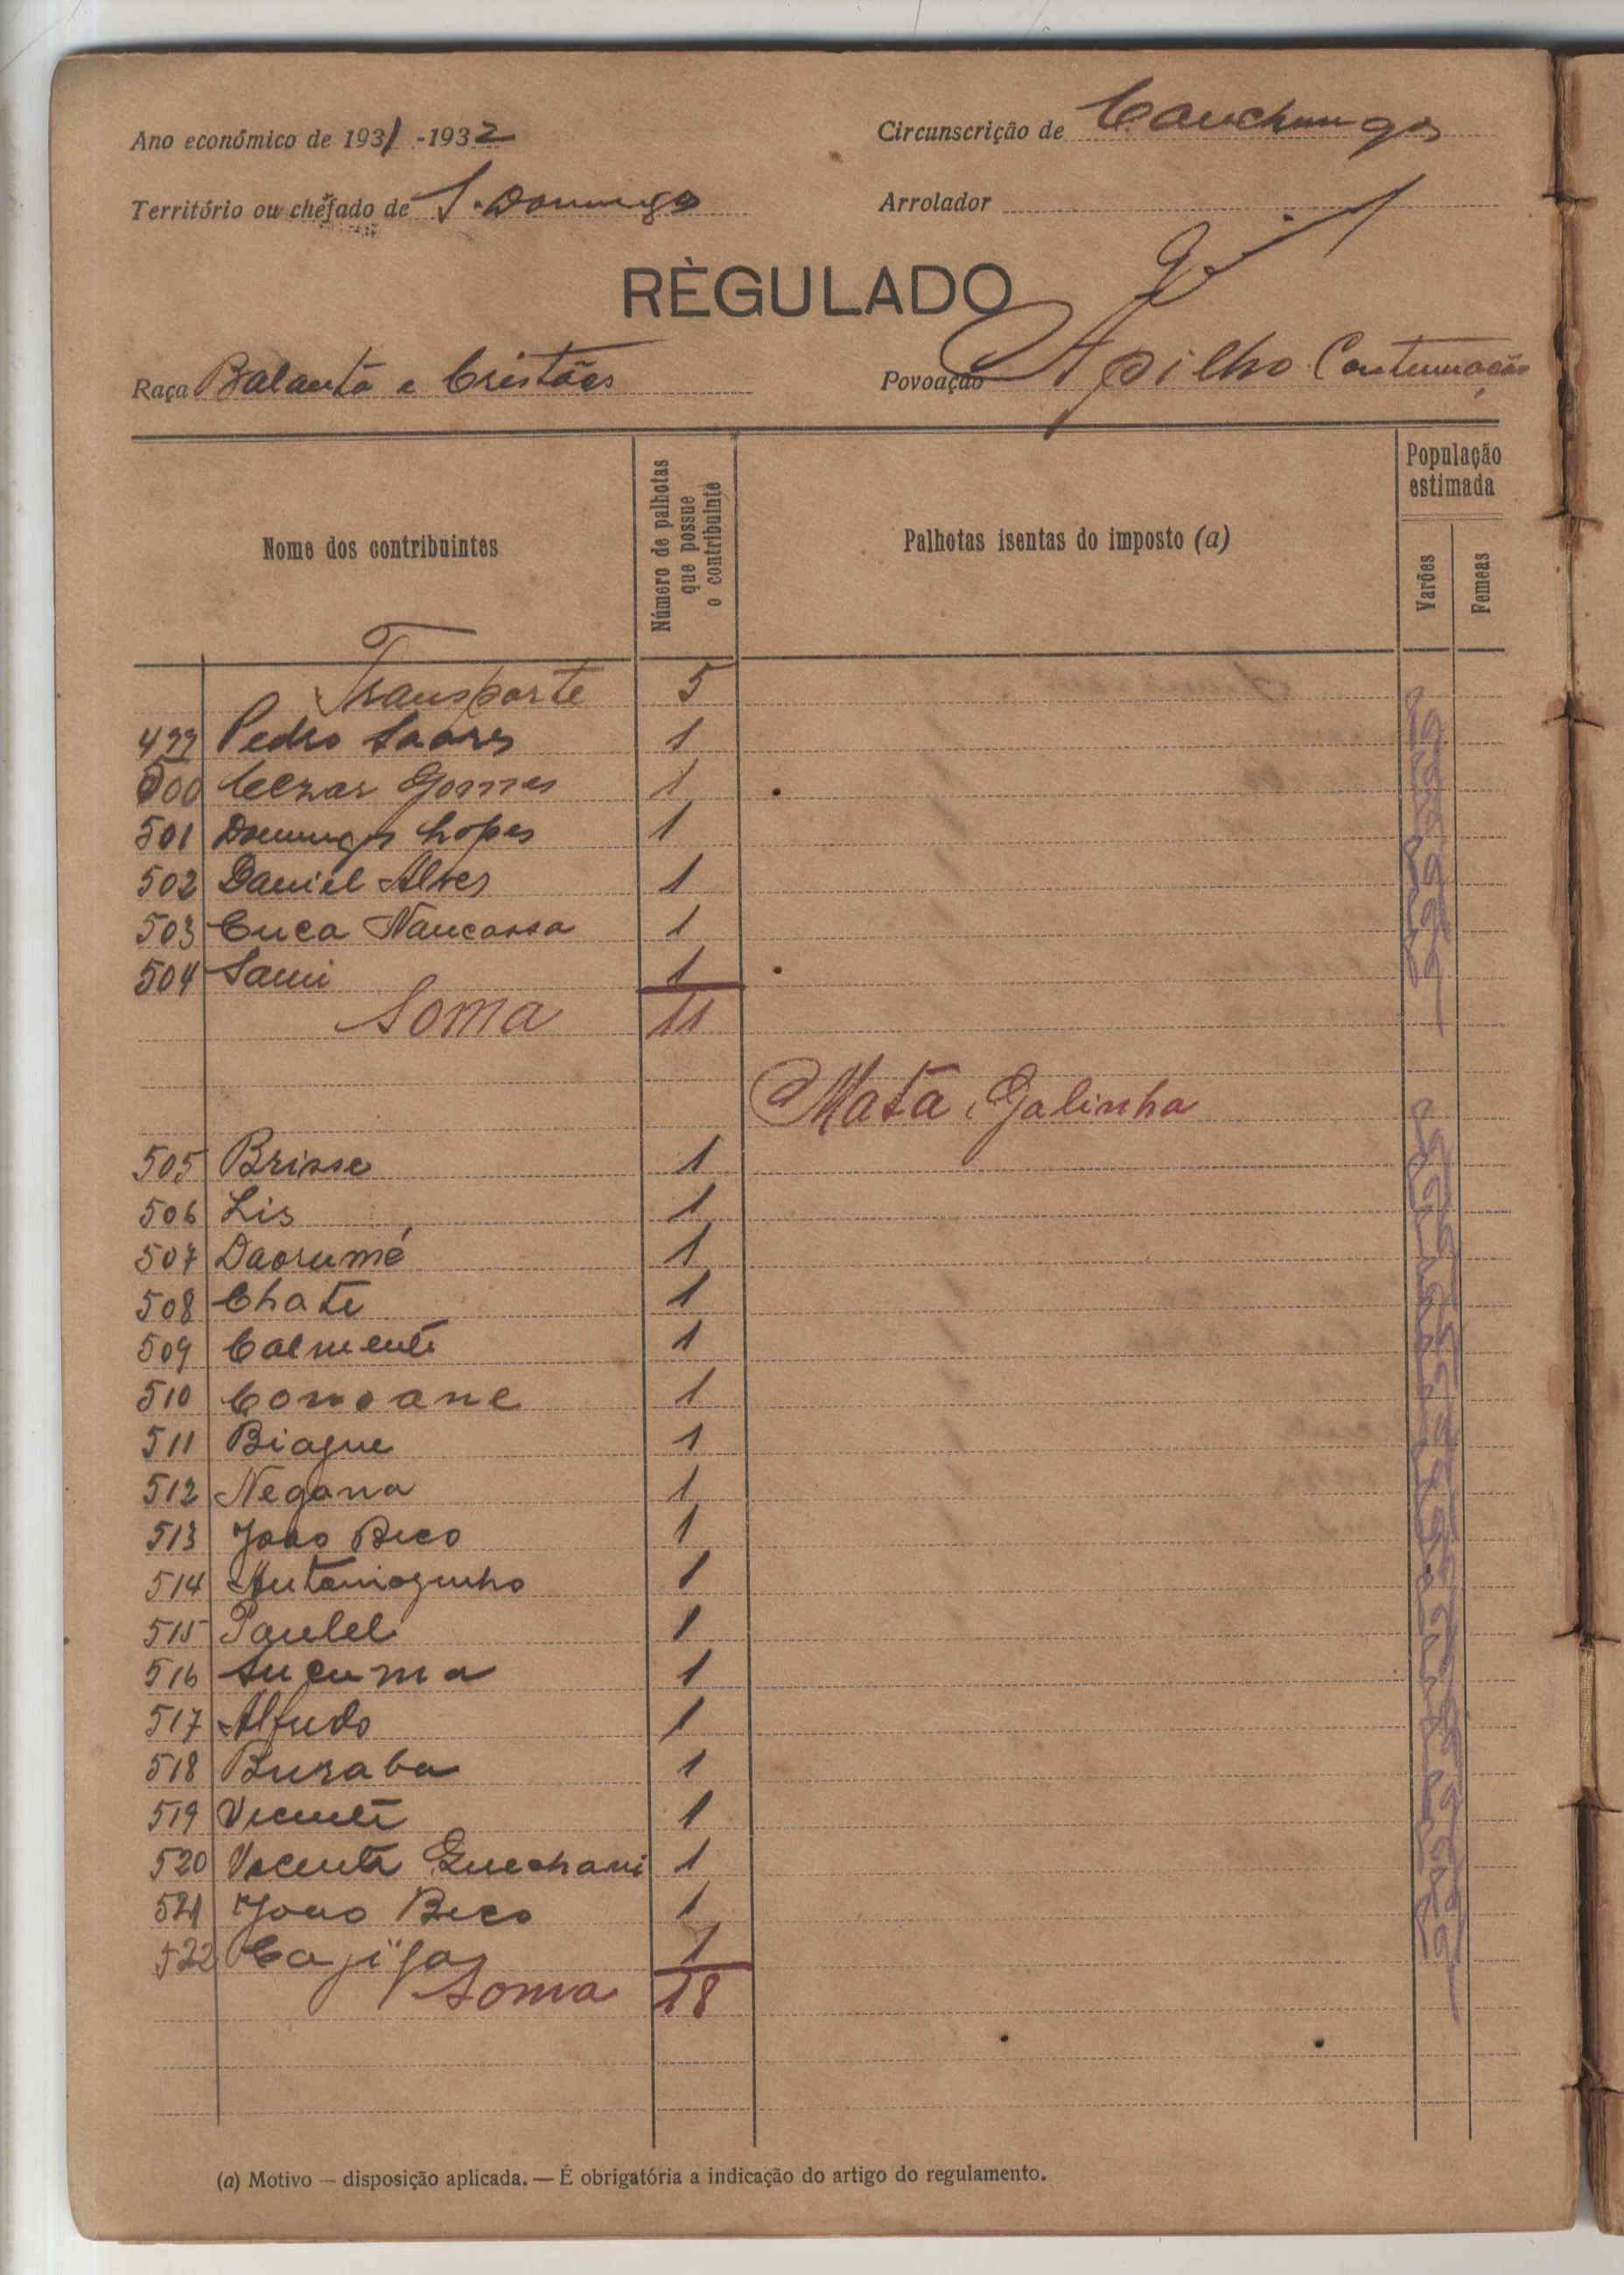 Ano económico de 1931-1932
Circunscrição de Canchungo
Território ou chefado de S. Domingo
Arrolador
RÈGULADO
Raça Balanta e Cristãos
Povoação Apilho Continuação
Nome dos contribuintes
Número de palhotas que possue o contribuinte
Palhotas isentas do imposto (a)
População estimada
Varões
Femeas
Transporte 5
499 Pedro Soares 1
500 Cezar Gomes 1
501 Domingos Lopes 1
502 Daniel Alves 1
503 Cuca Nancassa 1
504 Sami 1
Soma 11
Mata Galinha
505 Brisse 1
506 Lis 1
507 Daorumé 1
508 Chate 1
509 Calmenti 1
510 1
511 Biague 1
512 Negana 1
513 João Beco 1
514 Antoniozinho 1
515 Paulel 1
516 Sucuma 1
517 Alfredo 1
518 Buraba 1
519 Vicente 1
520 Vicente 1
521 João Beco 1
522 1
Soma 18
(a) Motivo — disposição aplicada. — É obrigatória a indicação do artigo do regulamento.